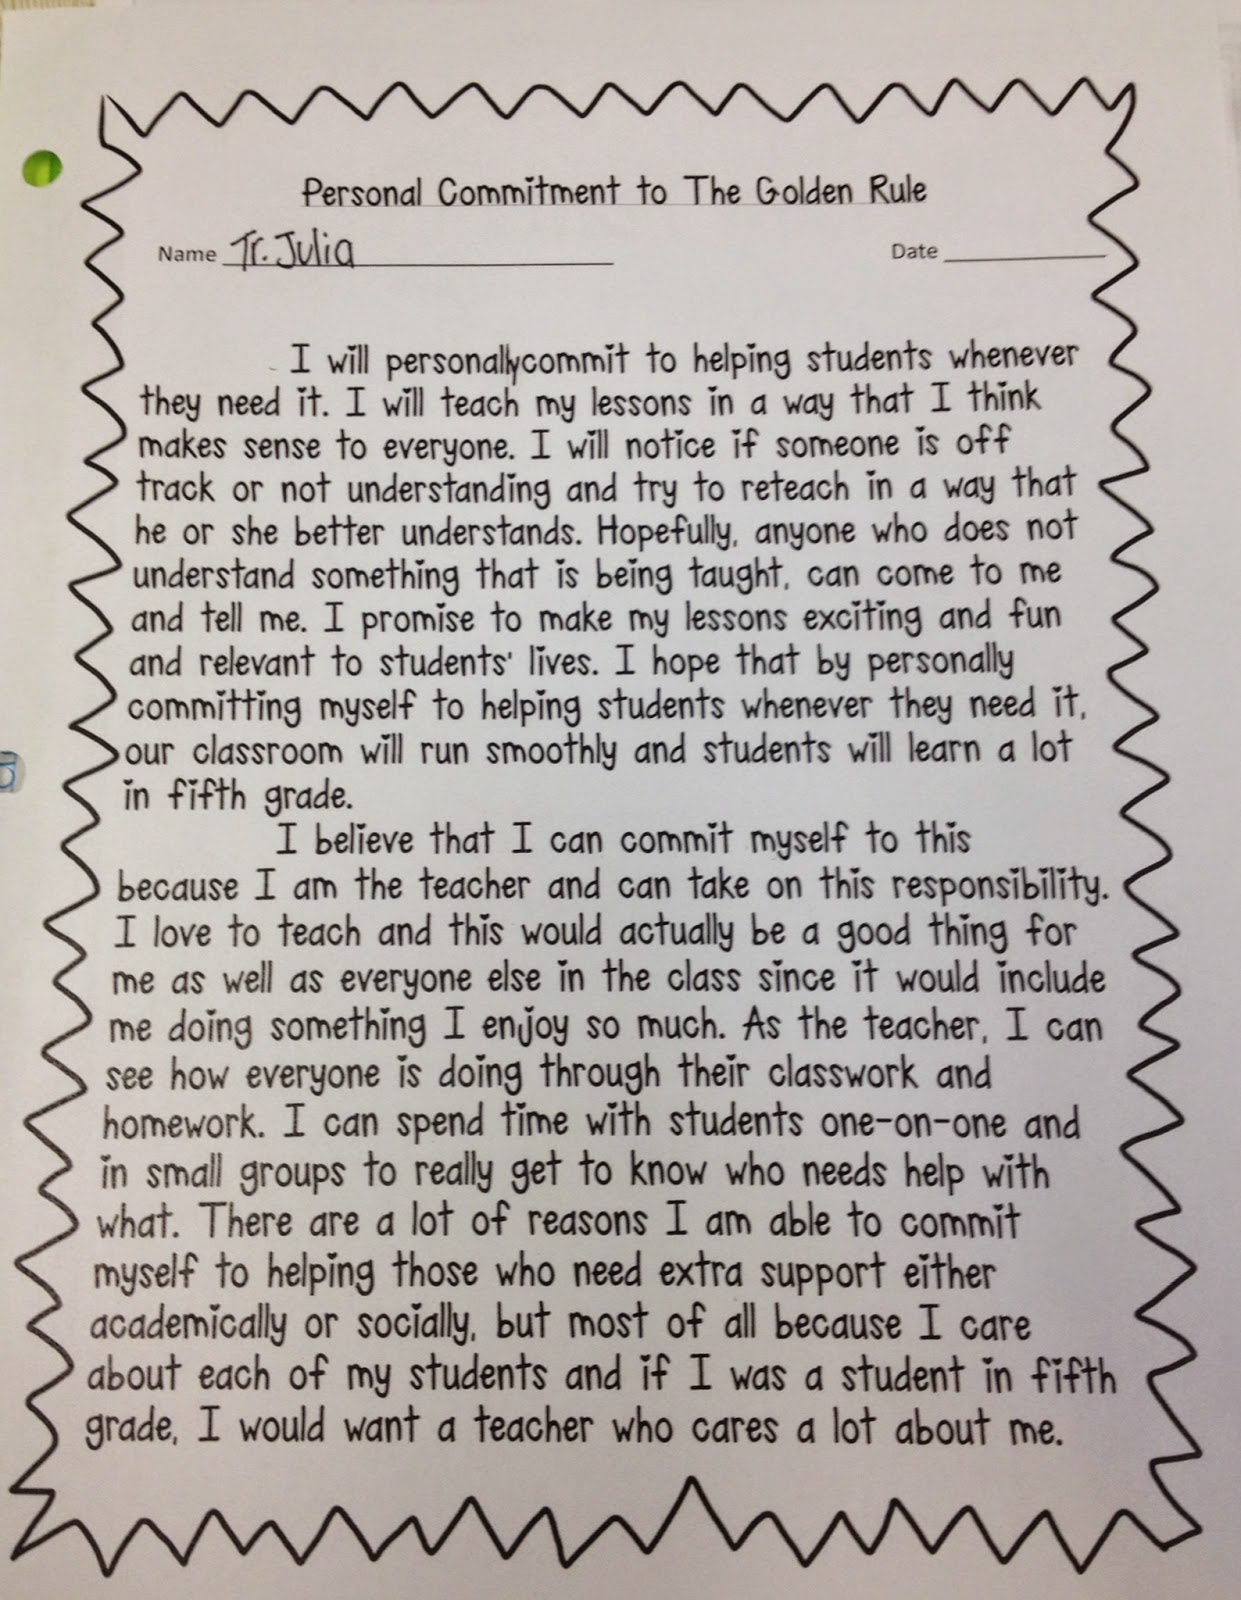 Personal Commitment to The Golden Rule
Name Tr. Julia Date
I will personallycommit to helping students whenever
they need it. I will teach my lessons in a way that I think
makes sense to everyone. I will notice if someone is off
track or not understanding and try to reteach in a way that
he or she better understands. Hopefully, anyone who does not
understand something that is being taught, can come to me
and tell me. I promise to make my lessons exciting and fun
and relevant to students' lives. I hope that by personally
committing myself to helping students whenever they need it,
our classroom will run smoothly and students will learn a lot
in fifth grade.
I believe that I can commit myself to this
because I am the teacher and can take on this responsibility.
I love to teach and this would actually be a good thing for
me as well as everyone else in the class since it would include
me doing something I enjoy so much. As the teacher, I can
see how everyone is doing through their classwork and
homework. I can spend time with students one-on-one and
in small groups to really get to know who needs help with
what. There are a lot of reasons I am able to commit
myself to helping those who need extra support either
academically or socially, but most of all because I care
about each of my students and if I was a student in fifth
grade, I would want a teacher who cares a lot about me.